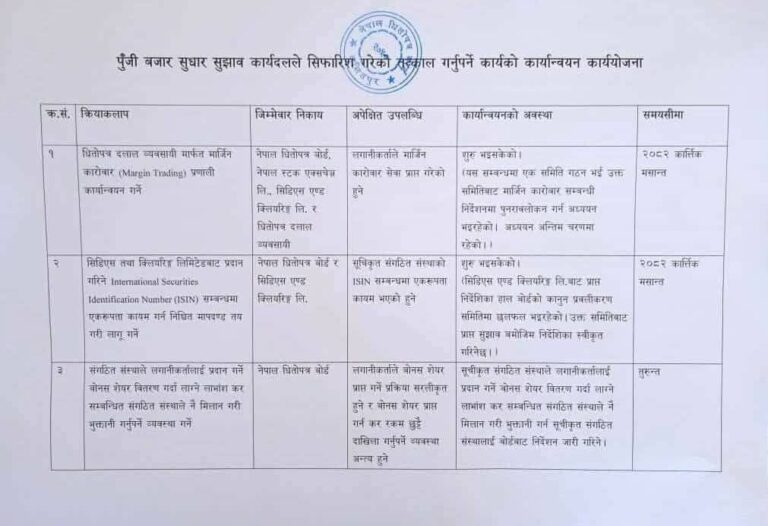 नेपाल धितोपत्र
पुँजी बजार सुधार सुझाव कार्यदलले सिफारिश गरेको तत्काल गर्नुपर्ने कार्यको कार्यान्वयन कार्ययोजना
क्र.सं. क्रियाकलाप जिम्मेवार निकाय अपेक्षित उपलब्धि कार्यान्वयनको अवस्था समयसीमा
१ धितोपत्र दलाल व्यवसायी मार्फत मार्जिन
कारोवार (Margin Trading) प्रणाली
कार्यान्वयन गर्ने
नेपाल धितोपत्र बोर्ड,
नेपाल स्टक एक्सचेञ्ज
लि., सिडिएस एण्ड
क्लियरिङ्ग लि. र
धितोपत्र दलाल
व्यवसायी
लगानीकर्ताले मार्जिन
कारोवार सेवा प्राप्त गरेको
हुने
शुरु भइसकेको।
(यस सम्बन्धमा एक समिति गठन भई उक्त
समितिबाट मार्जिन कारोवार सम्बन्धी
निर्देशनमा पुनरावलोकन गर्न अध्ययन
भइरहेको। अध्ययन अन्तिम चरणमा
रहेको।।
२०८२ कार्तिक
मसान्त
२ सिडिएस तथा क्लियरिङ्ग लिमिटेडबाट प्रदान
गरिने International Securities
Identification Number (ISIN) सम्बन्धमा
एकरूपता कायम गर्न निश्चित मापदण्ड तय
गरी लागू गर्ने
नेपाल धितोपत्र बोर्ड र
सिडिएस एण्ड
क्लियरिङ्ग लि.
सूचिकृत संगठित संस्थाको
ISIN सम्बन्धमा एकरूपता
कायम भएको हुने
शुरु भइसकेको।
(सिडिएस एण्ड क्लियरिङ्ग लि.बाट प्राप्त
निर्देशिका हाल बोर्डको कानुन प्रवलीकरण
समितिमा छलफल भइरहेको।उक्त समितिबाट
प्राप्त सुझाव बमोजिम निर्देशिका स्वीकृत
गरिनेछ।।
२०८२ कार्तिक
मसान्त
३ संगठित संस्थाले लगानीकर्तालाई प्रदान गर्ने
बोनस शेयर वितरण गर्दा लाग्ने लाभांश कर
सम्बन्धित संगठित संस्थाले नै मिलान गरी
भुक्तानी गर्नुपर्ने व्यवस्था गर्ने
नेपाल धितोपत्र बोर्ड
लगानीकर्ताले बोनस शेयर
प्राप्त गर्ने प्रक्रिया सरलीकृत
हुने र बोनस शेयर प्राप्त
गर्न कर रकम छुट्टै
दाखिला गर्नुपर्ने व्यवस्था
अन्त्य हुने
सूचीकृत संगठित संस्थाले लगानीकर्तालाई
प्रदान गर्ने बोनस शेयर वितरण गर्दा लाग्ने
लाभांश कर सम्बन्धित संगठित संस्थाले नै
मिलान गरी भुक्तानी गर्न सूचीकृत संगठित
संस्थालाई बोर्डबाट निर्देशन जारी गरिने।
तुरुन्त